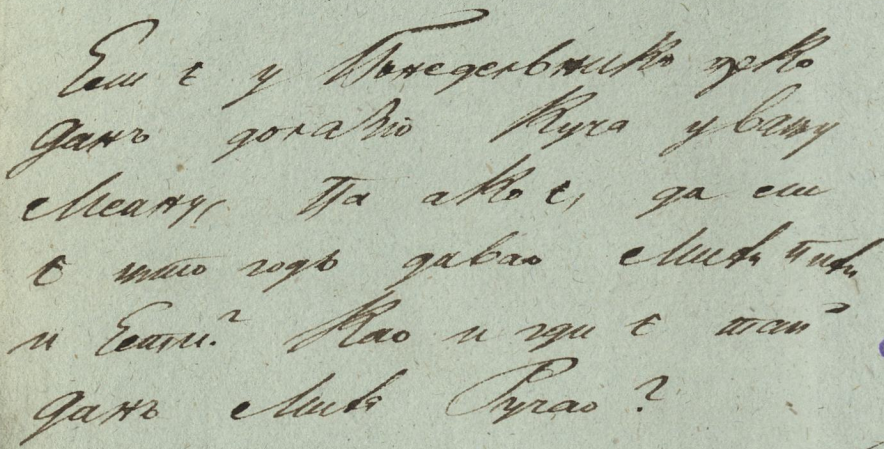 Ели є у Понедельникъ преко
Данъ долазіо Куча у вашу
Меану, Па ако є, да ели
є што годъ давао Мити Пити
и Ести? Као и гди є тай
Данъ Митя Ручао?